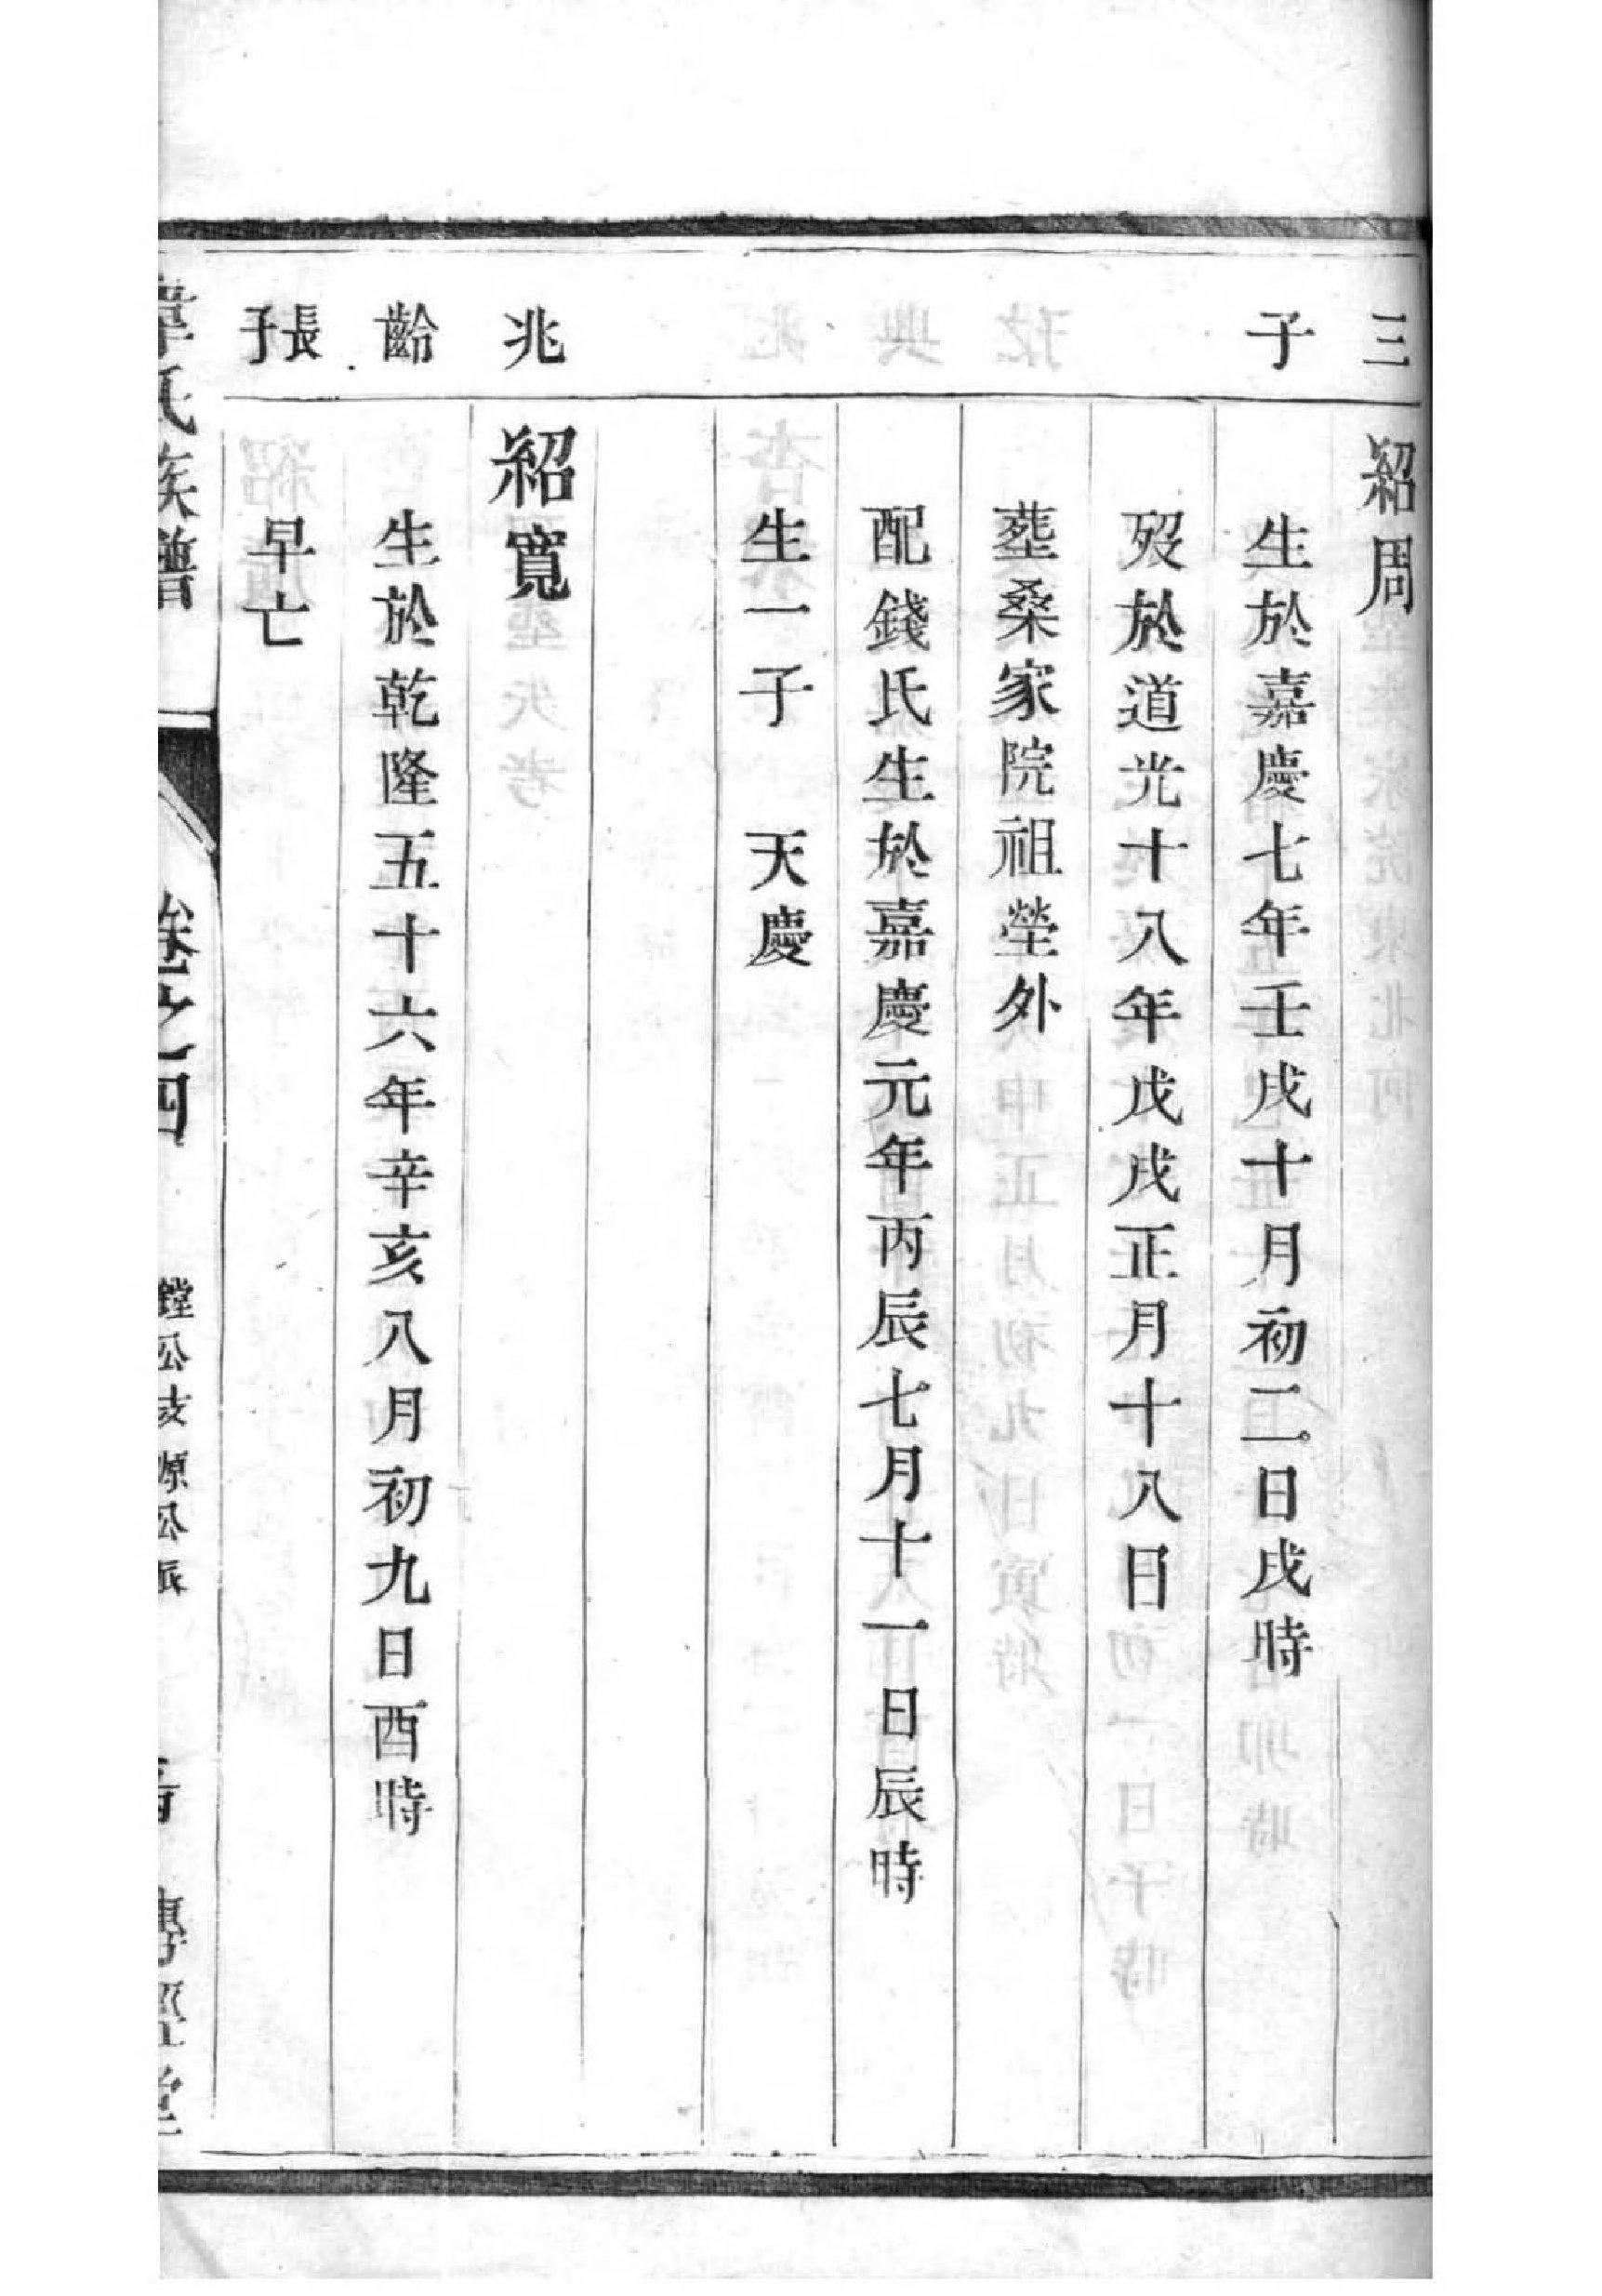 三子
紹周
生於嘉慶七年壬戌十月初二日戌時
歿於道光十八年戊戌正月十八日
葬桑家院祖塋外
配錢氏生於嘉慶元年丙辰七月十一日辰時
生一子　天慶
兆齡長子
紹寬
生於乾隆五十六年辛亥八月初九日酉時
早亡
韋氏族譜
卷之四
鏜公支源公派
傳經堂